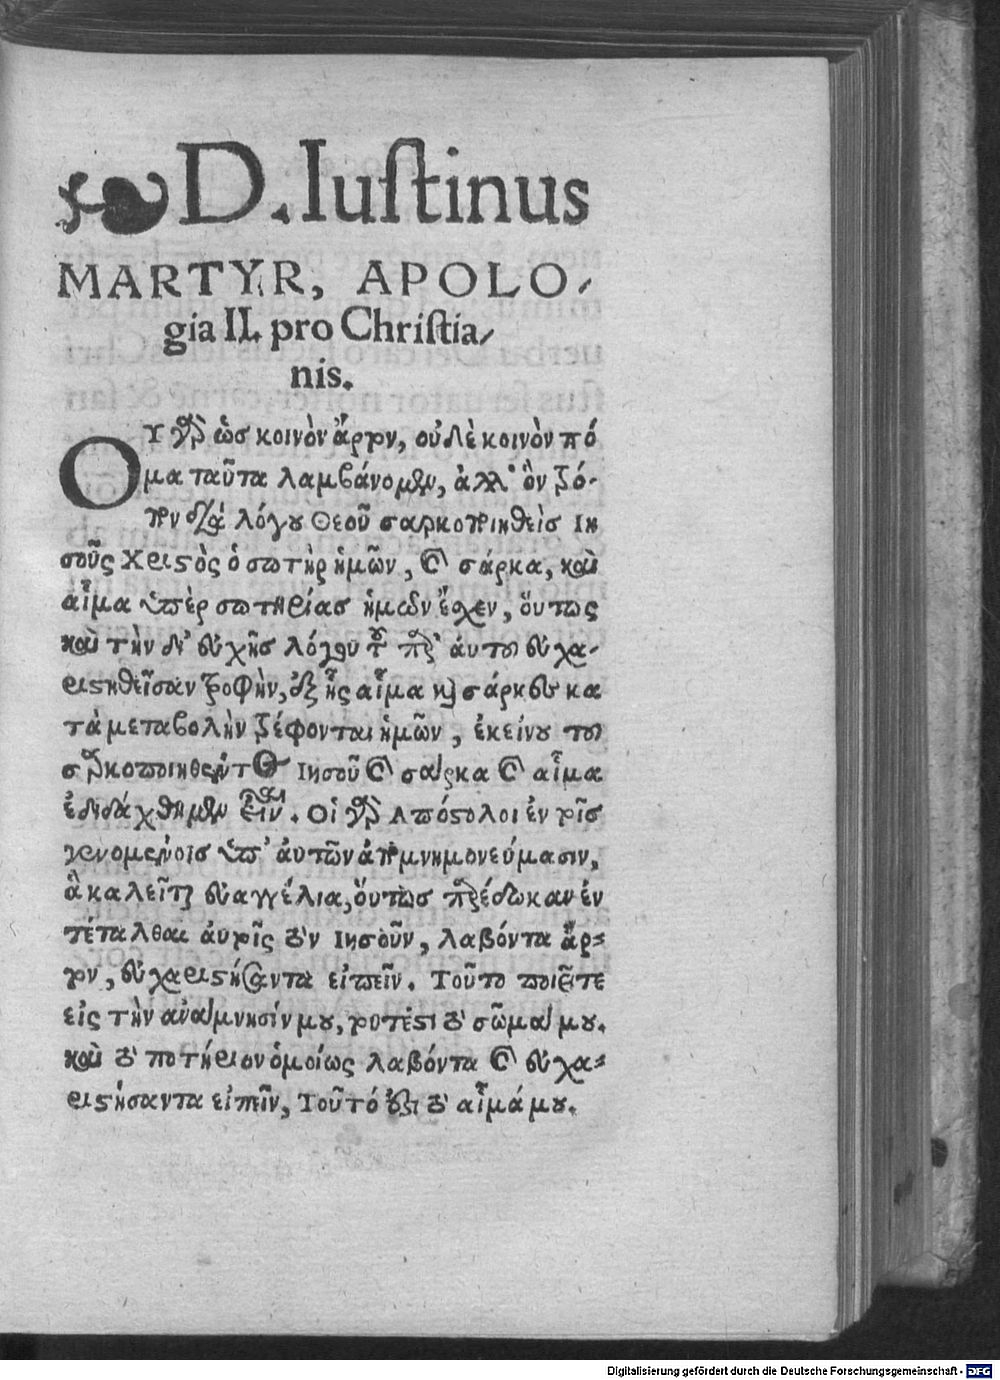 D. Iuſtinus
MARTYR, APOLO-
gia II. pro Chriſtia-
nis.
ΟΥ γὰρ ὡσ κοινὸν ἄρτον, οὐδὲ κοινὸν πό
μα ταῦτα λαμβάνομεν, ἀλλ' ὃν τρό-
πον διὰ λόγου Θεοῦ σαρκοποιηθεὶσ Ιη
σοῦς Χριστὸς ὁ σωτὴρ ἡμῶν, καὶ σάρκα, καὶ
αἷμα ὑπὲρ σωτηρίασ ἡμῶν ἔχεν, ὅυτως
καὶ τὴν δι' εὐχῆσ λόγου τοῦ παρ' ἀυτου εὐχα-
ριστηθεῖσαν τροφὴν, ἐξ ἧς αἷμα καὶ σάρκες κα
τὰ μεταβολὴν τρέφονται ἡμῶν, ἐκείνου του
σαρκοποιηθέντος Ιησοῦ καὶ σαρκα καὶ αἷμα
ἐδιδάχθημεν εἶναι. Οἱ γὰρ Απόστολοι ἐν τοῖσ
γενομένοισ ὑπ' ἀυτῶν ἀπομνημονεύμασιν,
ἃ καλεῖται εὐαγγέλια, ὅυτωσ παρέδωκαν ἐν
τέταλθαι ἀυτοῖς τὸν Ιησοῦν, λαβόντα ἄρ-
τον, εὐχαριστήσαντα εἰπεῖν. Τοῦτο ποιεῖτε
εἰς τὴν ανάμνησίν μου, τουτέστι τὸ σῶμα μου.
καὶ τὸ ποτήριον ὁμοίως λαβόντα καὶ εὐχα-
ριστήσαντα εἰπεῖν, Τοῦτό ἐστι τὸ αἷμά μου.
Digitalisierung gefördert durch die Deutsche Forschungsgemeinschaft - DFG